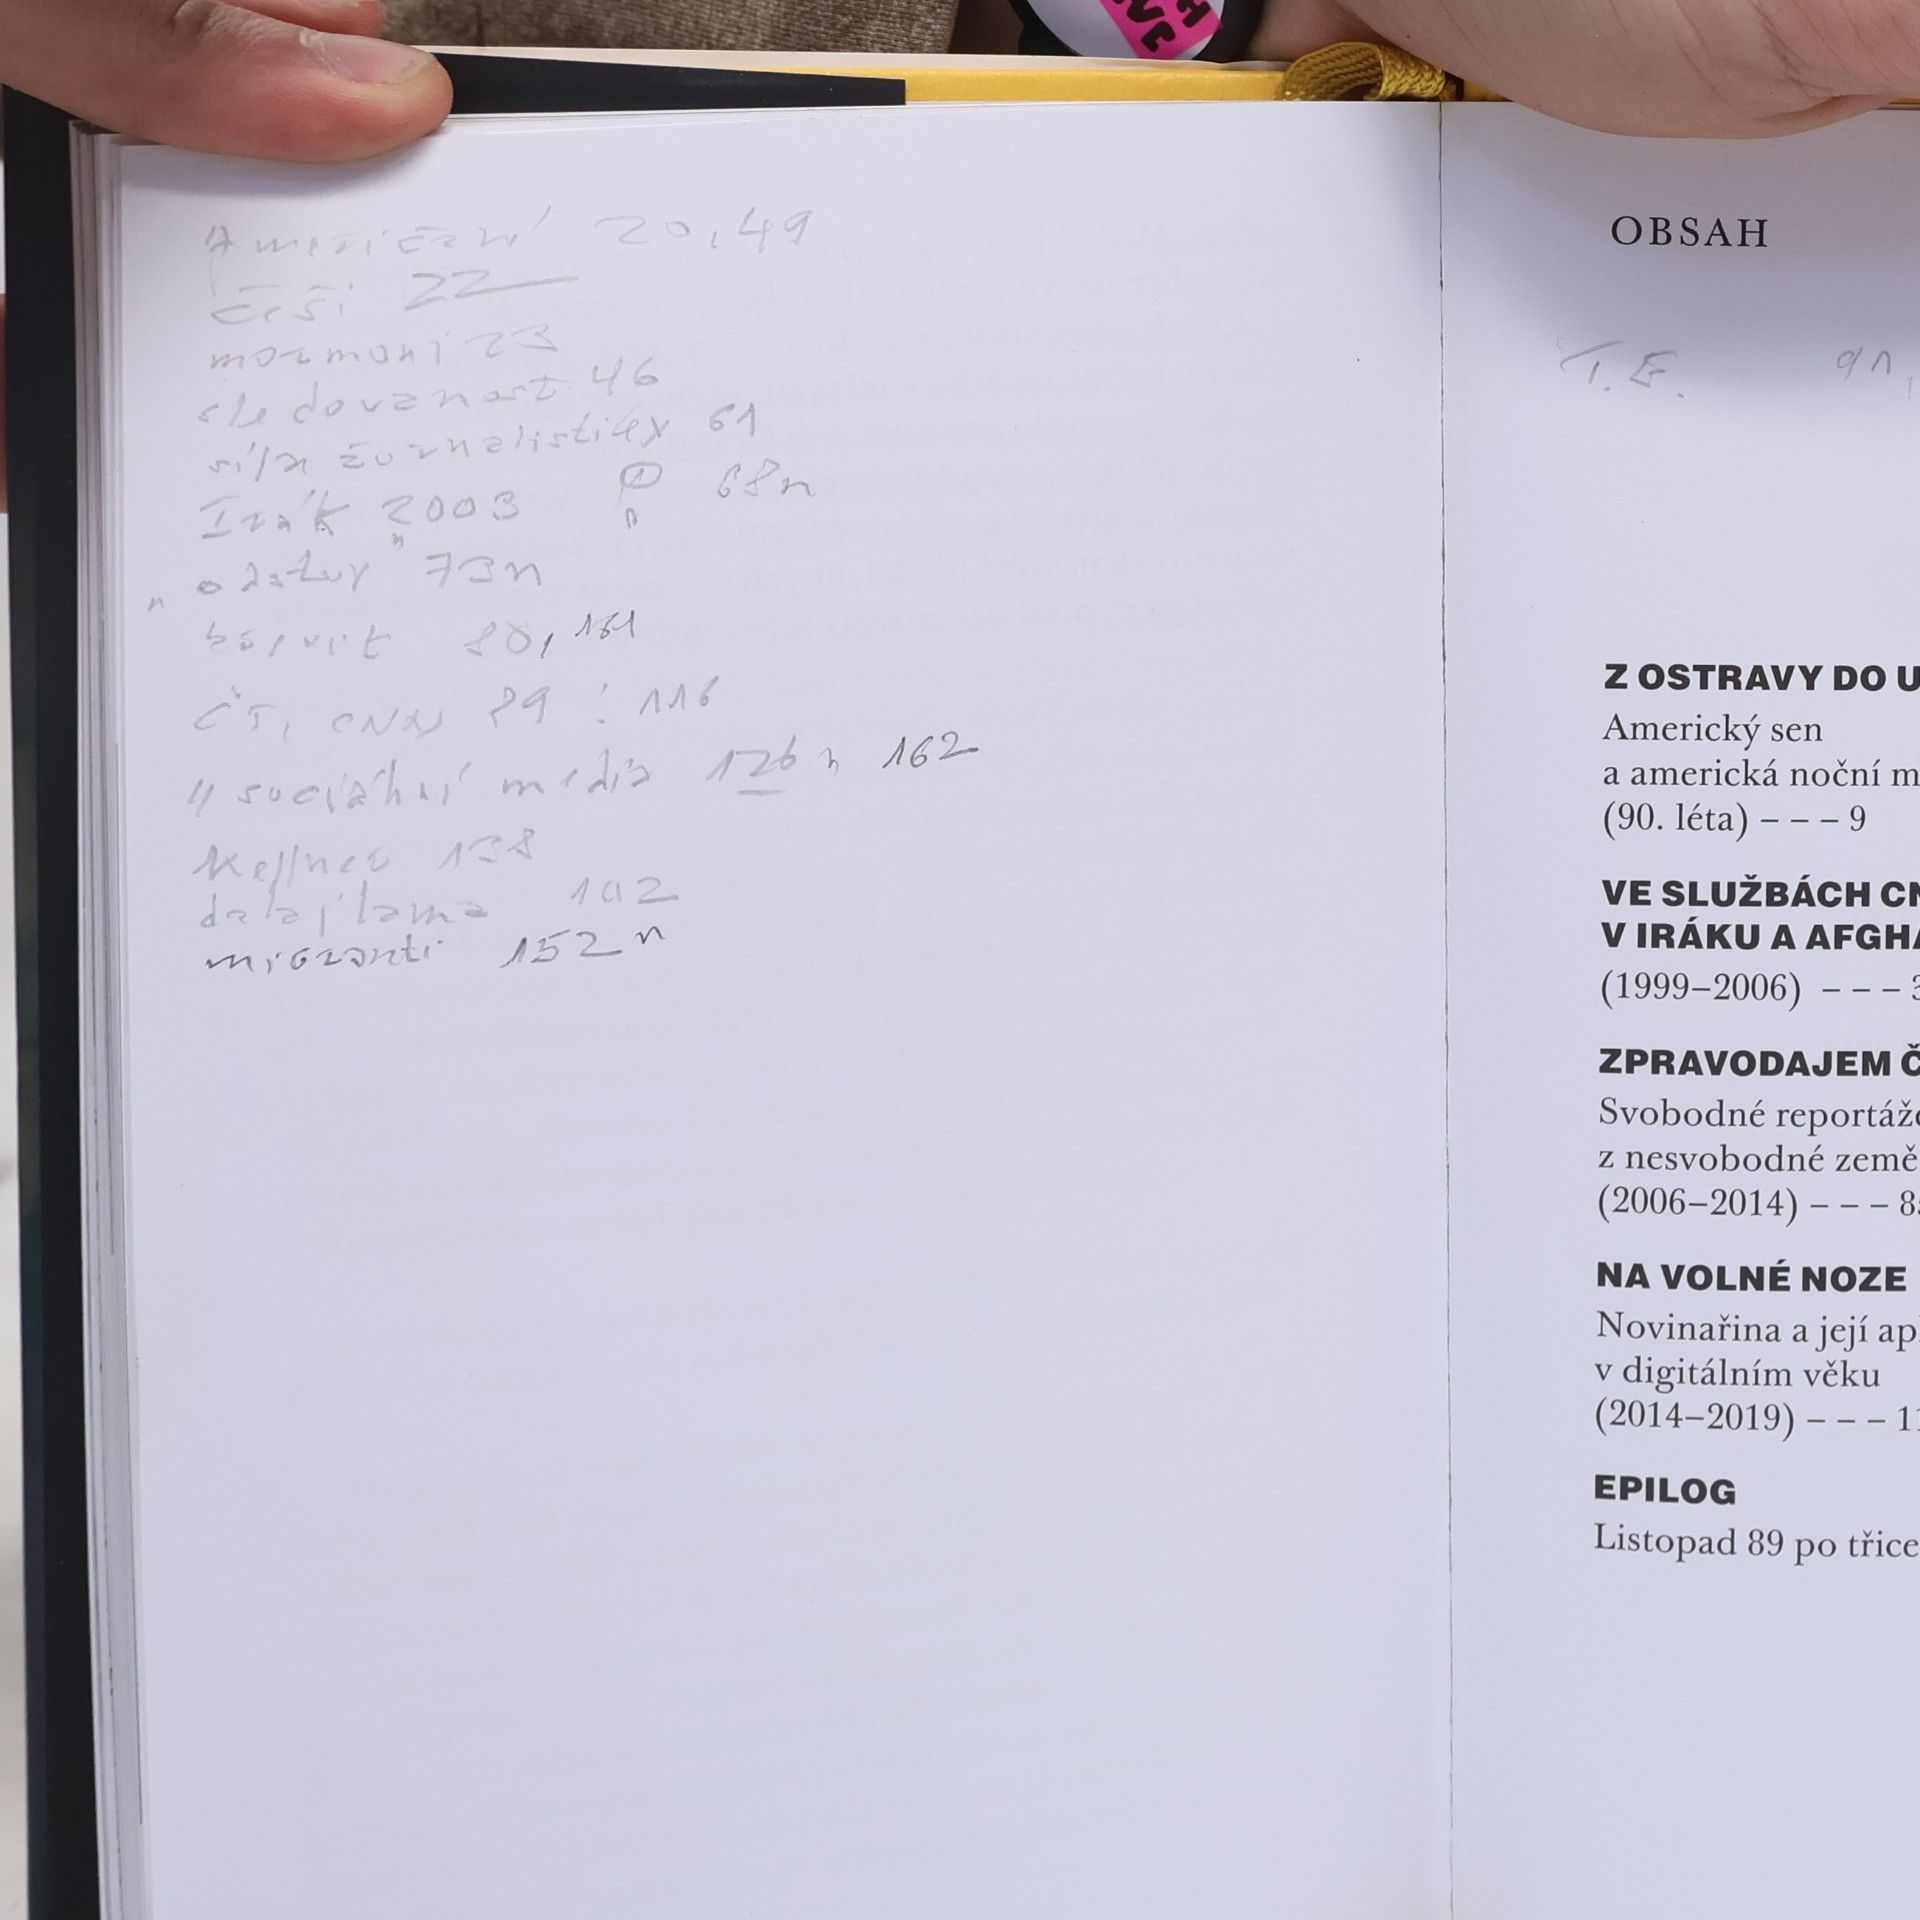 Američané 20, 49
Češi 22
mormoni 23
sledovanost 46
síla žurnalistiky 61
Irák 2003 68n
73n
80, 151
ČT, CNN 89 : 116
sociální media 126n 162
Kellner 138
dalajlama 102
migranti 152n
OBSAH
T. E. 91,
Z OSTRAVY DO U
Americký sen
a americká noční m
(90. léta) – – – 9
VE SLUŽBÁCH CN
V IRÁKU A AFGHA
(1999–2006) – – – 3
ZPRAVODAJEM Č
Svobodné reportáže
z nesvobodné země
(2006–2014) – – – 8
NA VOLNÉ NOZE
Novinařina a její ap
v digitálním věku
(2014–2019) – – – 11
EPILOG
Listopad 89 po třice